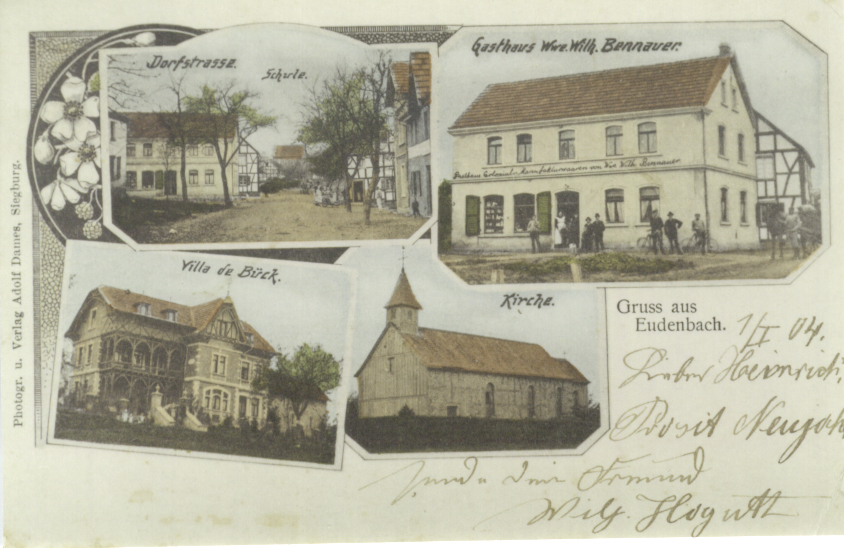 Dorfstrasse.
Schule.
Gasthaus Wwe. Wilh. Bennauer.
Gasthaus Colonial- u. Manufakturwaaren von Ww. Wilh. Bennauer
Villa de Bück.
Kirche.
Gruss aus
Eudenbach.
1/I 04.
Lieber Heinrich,
Prosit Neujah
Dein Freund
Wilh.
Photogr. u. Verlag Adolf Dames, Siegburg.